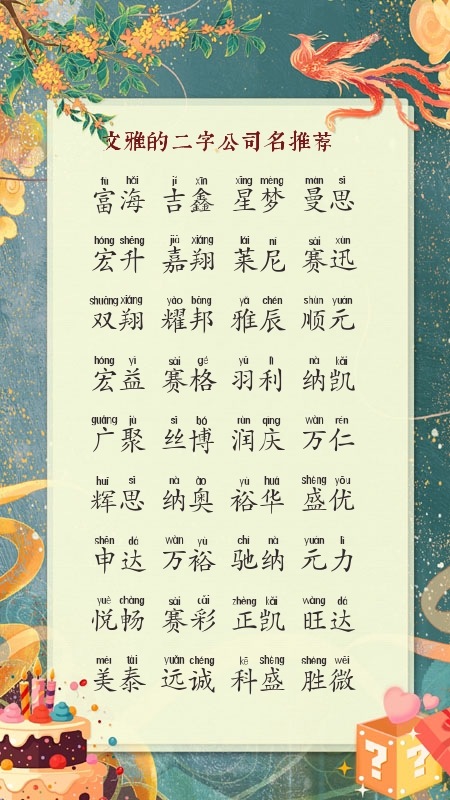 文雅的二字公司名推荐
fù hǎi jí xīn xīng mèng màn sī
富海 吉鑫 星梦 曼思
hóng shēng jiā xiáng lái ní sài xùn
宏升 嘉翔 莱尼 赛迅
shuāng xiáng yào bāng yǎ chén shùn yuán
双翔 耀邦 雅辰 顺元
hóng yì sài gé yǔ lì nà kǎi
宏益 赛格 羽利 纳凯
guǎng jù sī bó rùn qìng wàn rén
广聚 丝博 润庆 万仁
huī sī nà ào yù huá shèng yōu
辉思 纳奥 裕华 盛优
shēn dá wàn yù chí nà yuán lì
申达 万裕 驰纳 元力
yuè chàng sài cǎi zhèng kǎi wàng dá
悦畅 赛彩 正凯 旺达
měi tài yuǎn chéng kē shèng shèng wēi
美泰 远诚 科盛 胜微
? ?